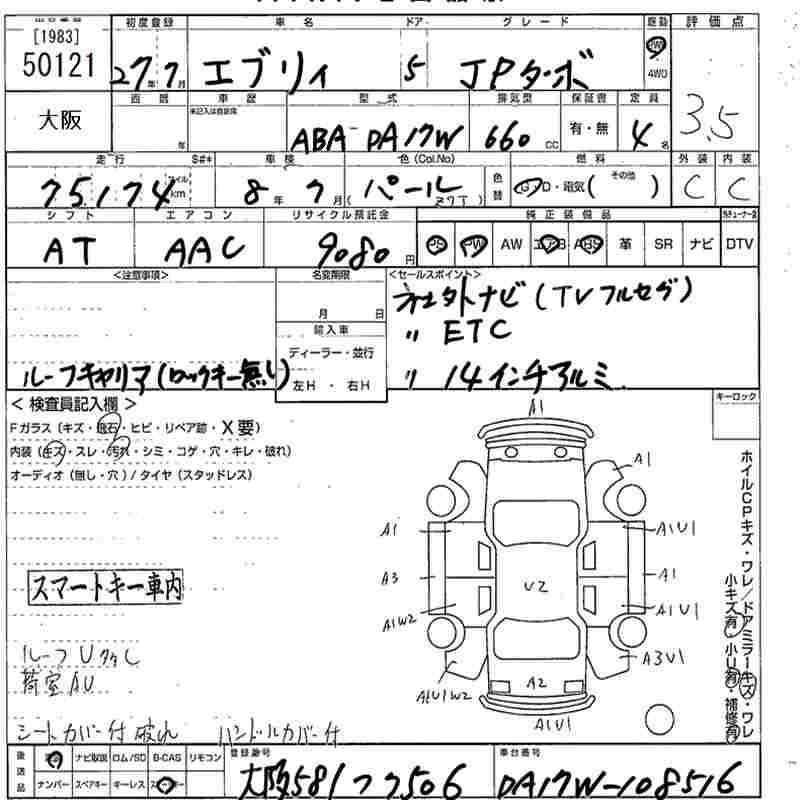 [1983]
50121
大阪
初度登録 車名 ドア グレード 駆動 評価点
27年7月 エブリイ 5 JPターボ 2WD 4WD 3.5
車歴 型式 排気型 保証書 定員
未記入は自家用
年 ABA-DA17W 660cc 有・無 4名
走行 S#* 車検 色(Col.No) 色替 燃料 外装 内装
75174 マイル km 8年7月 (パール Z7T) G・D・電気( その他 ) C C
シフト エアコン リサイクル預託金 純正装備品
AT AAC 9080円 PS PW AW エアB ABS 革 SR ナビ DTV
<注意事項> 名変期限 <セールスポイント>
月 日 社外ナビ(TVフルセグ)
輸入車 〃 ETC
ディーラー・並行
ルーフキャリア(ロックキー無し) 左H・右H 〃 14インチアルミ
<検査員記入欄> キーロック
Fガラス(キズ・飛石・ヒビ・リペア跡・X要)
内装(キズ・スレ・汚れ・シミ・コゲ・穴・キレ・破れ)
オーディオ(無し・穴)/タイヤ(スタッドレス)
スマートキー車内
ルーフU多し
荷室AU
シートカバー付 破れ ハンドルカバー付
A1
A1
A1 A1U1
A3 U2 A1
A1W2 A1U1
A3U1
A1U1W2 A2
A1U1
ホイルCPキズ・ワレ/ドアミラーキズ・ワレ
小キズ有・小U有・補修有
後送品 ナビ取説 ロム/SD B-CAS リモコン 登録番号 車台番号
ナンバー スペアキー キーレス 大阪581 77506 DA17W-108516